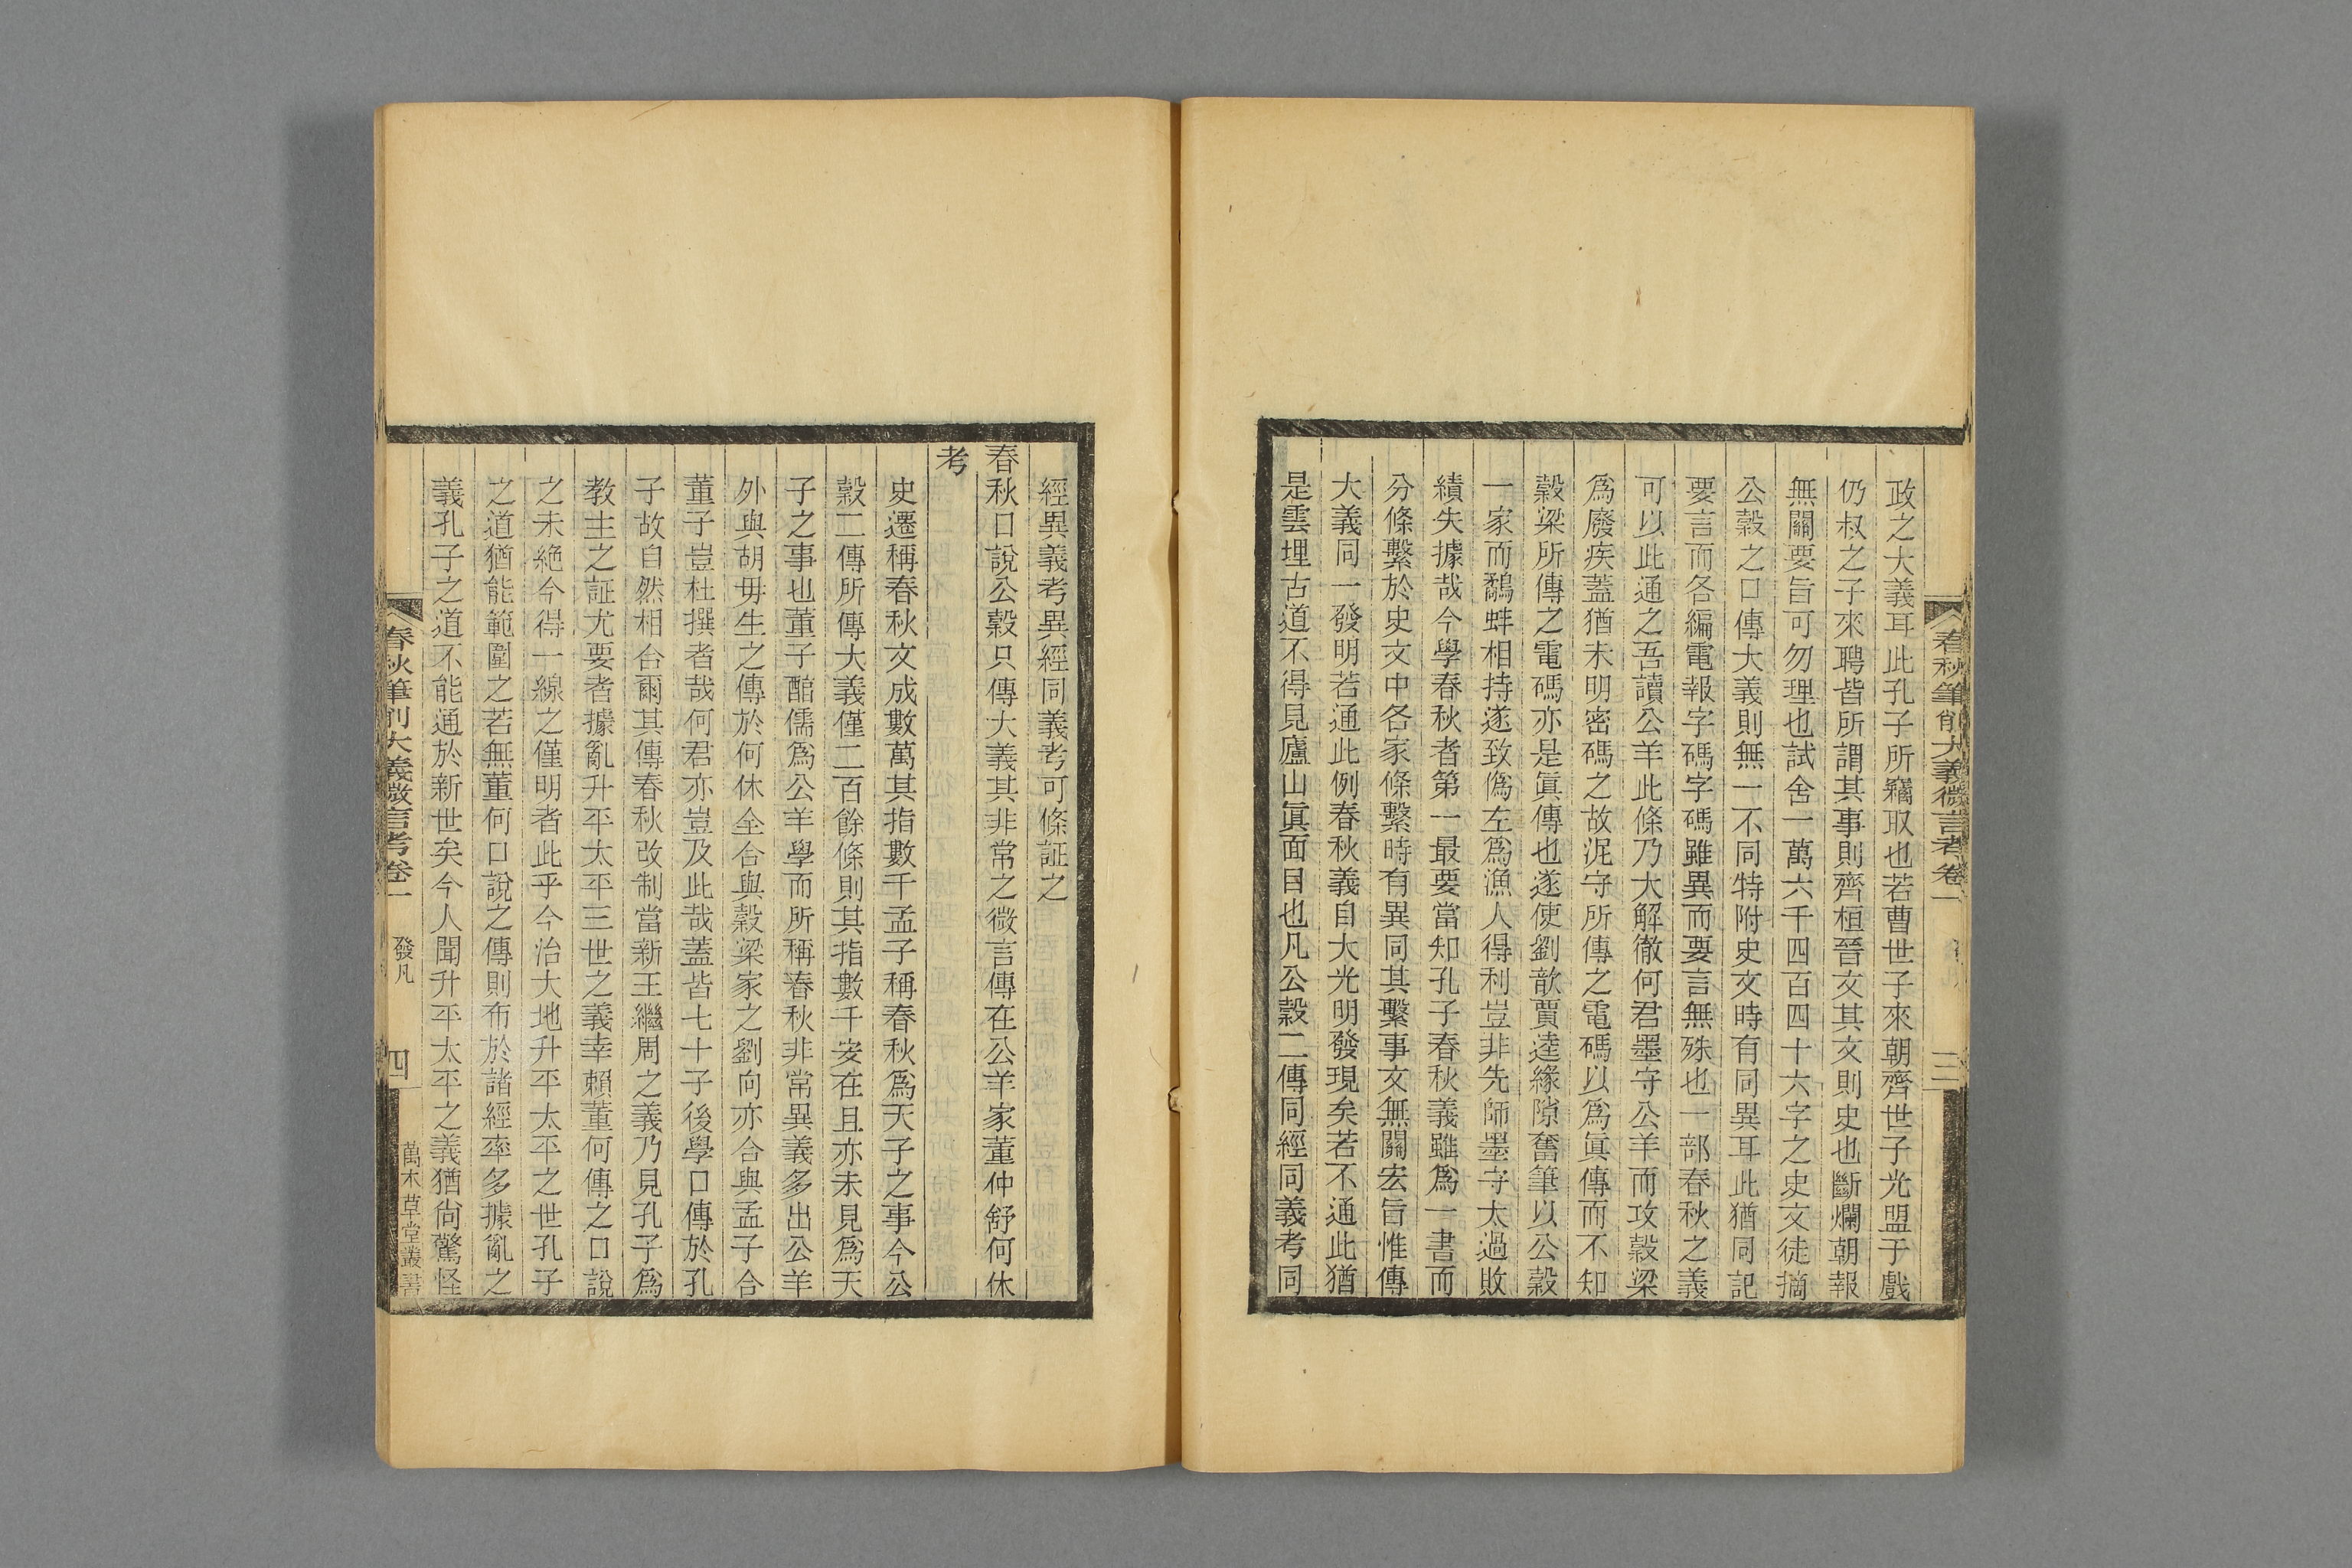 政之大義耳此孔子所竊取也若曹世子來朝齊世子光盟于戲
仍叔之子來聘皆所謂其事則齊桓晉文其文則史也斷爛朝報
無關要旨可勿理也試舍一萬六千四百四十六字之史文徒摘
公穀之口傳大義則無一不同特附史文時有同異耳此猶同記
要言而各編電報字碼字碼雖異而要言無殊也一部春秋之義
可以此通之吾讀公羊此條乃大解徹何君墨守公羊而攻穀梁
爲廢疾蓋猶未明密碼之故泥守所傳之電碼以爲眞傳而不知
穀梁所傳之電碼亦是眞傳也遂使劉歆賈逵緣隙奮筆以公穀
一家而鷸蚌相持遂致僞左爲漁人得利豈非先師墨守太過敗
績失據哉今學春秋者第一最要當知孔子春秋義雖爲一書而
分條繫於史文中各家條繫時有異同其繫事文無關宏旨惟傳
大義同一發明若通此例春秋義自大光明發現矣若不通此猶
是雲埋古道不得見廬山眞面目也凡公穀二傳同經同義考同
春秋筆削大義微言考卷一
三
經異義考異經同義考可條証之
春秋口說公穀只傳大義其非常之微言傳在公羊家董仲舒何休
考
史遷稱春秋文成數萬其指數千孟子稱春秋爲天子之事今公
穀二傳所傳大義僅二百餘條則其指數千安在且亦未見爲天
子之事也董子醇儒爲公羊學而所稱春秋非常異義多出公羊
外與胡毋生之傳於何休全合與穀梁家之劉向亦合與孟子合
董子豈杜撰者哉何君亦豈及此哉蓋皆七十子後學口傳於孔
子故自然相合爾其傳春秋改制當新王繼周之義乃見孔子爲
教主之証尤要者據亂升平太平三世之義幸賴董何傳之口說
之未絶今得一線之僅明者此乎今治大地升平太平之世孔子
之道猶能範圍之若無董何口說之傳則布於諸經率多據亂之
義孔子之道不能通於新世矣今人聞升平太平之義猶尙驚怪
春秋筆削大義微言考卷一
發凡
四
萬木草堂叢書